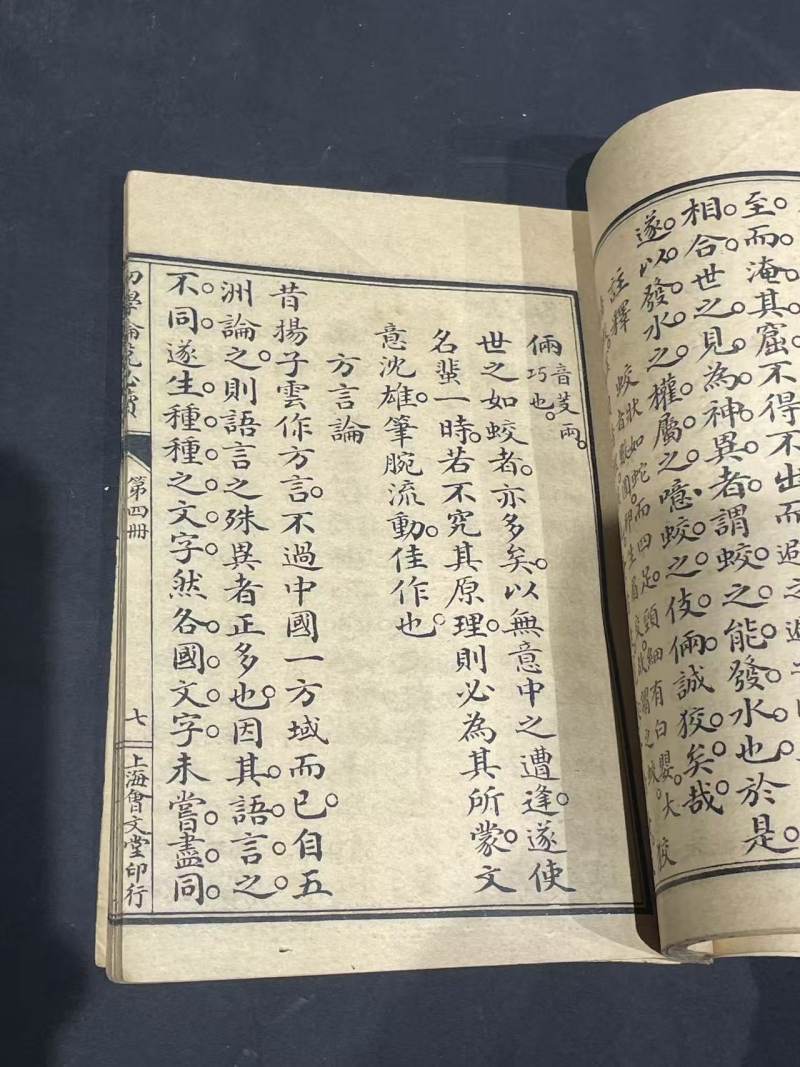 至。而淹其窟。不得不出而過之
相合。世之見為神異者。謂蛟之能發水也。於是
遂以發水之權屬之。噫。蛟之伎倆。誠狡矣哉
註釋 蛟狀如蛇而四足。頭細。有白嬰。大
倆音芰兩。巧也。
世之如蛟者。亦多矣。以無意中之遭逢。遂使
名輩一時。若不究其原理。則必為其所蒙。文
意沈雄。筆腕流動。佳作也。
方言論
昔揚子雲作方言。不過中國一方域而已。自五
洲論之。則語言之殊異者正多也。因其語言之
不同。遂生種種之文字。然各國文字。未嘗盡同。
初學論說必讀
第四冊
七
上海會文堂印行